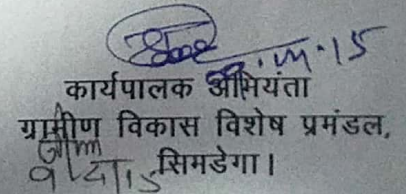 कार्यपालक अभियंता
ग्रामीण विकास विशेष प्रमंडल,
सिमडेगा।